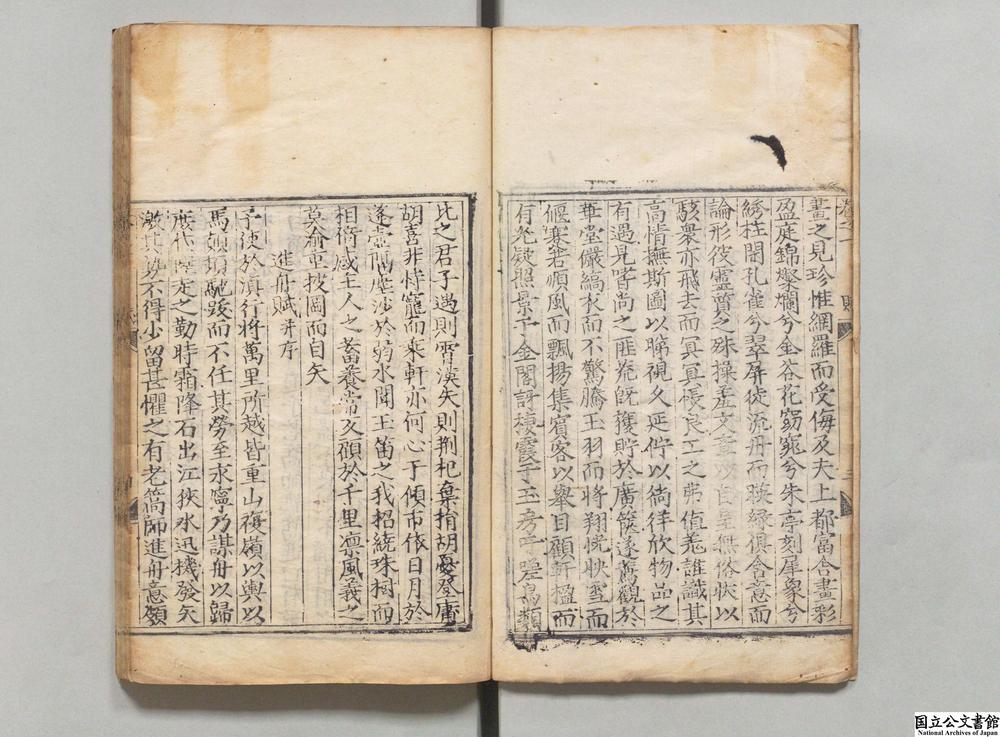 卷之一 賦
畫之見珍惟網羅而受侮及夫上都富舍畫彩
盈庭錦燦爛兮金谷花窈窕兮朱亭刻犀象兮
綉柱開孔雀兮翠屏徙流丹而暎緑俱含意而
論形彼靈質之殊操羞文章以自呈無俗狀以
駭衆亦飛去而冥冥悵良工之弗值羗誰識其
高情撫斯圖以睇視久延佇以徜徉欣物品之
有遇見嗜尚之匪荒旣獲貯於廣篋遂薦觀於
華堂嚴縞衣而不驚騰玉羽而將翔恍怏䀚而
偃蹇若順風而飄揚集賓客以舉目顧軒楹而
有光疑照景于金閣訝棲霞于玉房于嗟鳥類
比之君子遇則霄漢失則荆杞棄捐胡憂登庸
胡喜非恃寵而乘軒亦何心于傾市依日月於
蓬壺隔塵沙於蒻水聞玉笛之我招繞珠樹而
相倚感主人之蓄養常反顧於千里禀風義之
莫渝重披圖而自矢
進舟賦并序
子使於滇行將萬里所越皆重山複嶺以輿以
馬頓頓馳跋而不任其勞至永寧乃謀舟以歸
庶代 走之勤時霜降石出江狹水迅機發矢
激 不得少留甚懼之有老篙師進舟意頗
国立公文書館
National Archives of Japan